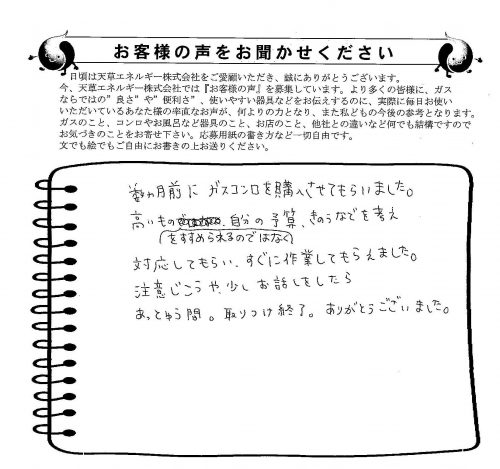 お客様の声をお聞かせください
日頃は天草エネルギー株式会社をご愛顧いただき、誠にありがとうございます。
今、天草エネルギー株式会社では『お客様の声』を募集しています。より多くの皆様に、ガス
ならではの"良さ"や"便利さ"、使いやすい器具などをお伝えするのに、実際に毎日お使い
いただいているあなた様の率直なお声が、何よりの力となり、また私どもの今後の参考となります。
ガスのこと、コンロやお風呂など器具のこと、お店のこと、他社との違いなど何でも結構ですので
お気づきのことをお寄せ下さい。応募用紙の書き方など一切自由です。
文でも絵でもご自由にお書きの上お送りください。
数ヵ月前に ガスコンロを購入させてもらいました。
高いもの 自分の予算、きのうなどを考え
をすすめられるのではなく
対応してもらい、すぐに作業してもらえました。
注意じこうや、少しお話しをしたら
あっとゆう間。取りつけ終了。ありがとうございました。